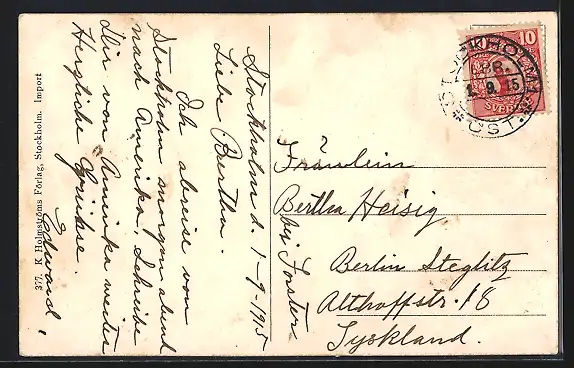 Stockholm d. 1-9-1915
Liebe Bertha.
Ich abreise von
Stockholm morgen abend
nach Amerika. Schreibe
Dir von Amerika weiter
Herzliche Grüsse.
Edward.
377. K Holmströms Förlag, Stockholm. Import
10
SVERIGE
STOCKHOLM 1
1. 9. 15
ÖST.
Fräulein
Bertha Heisig
bej Forster
Berlin Steglitz
Althoffstr. 18
Tyskland.